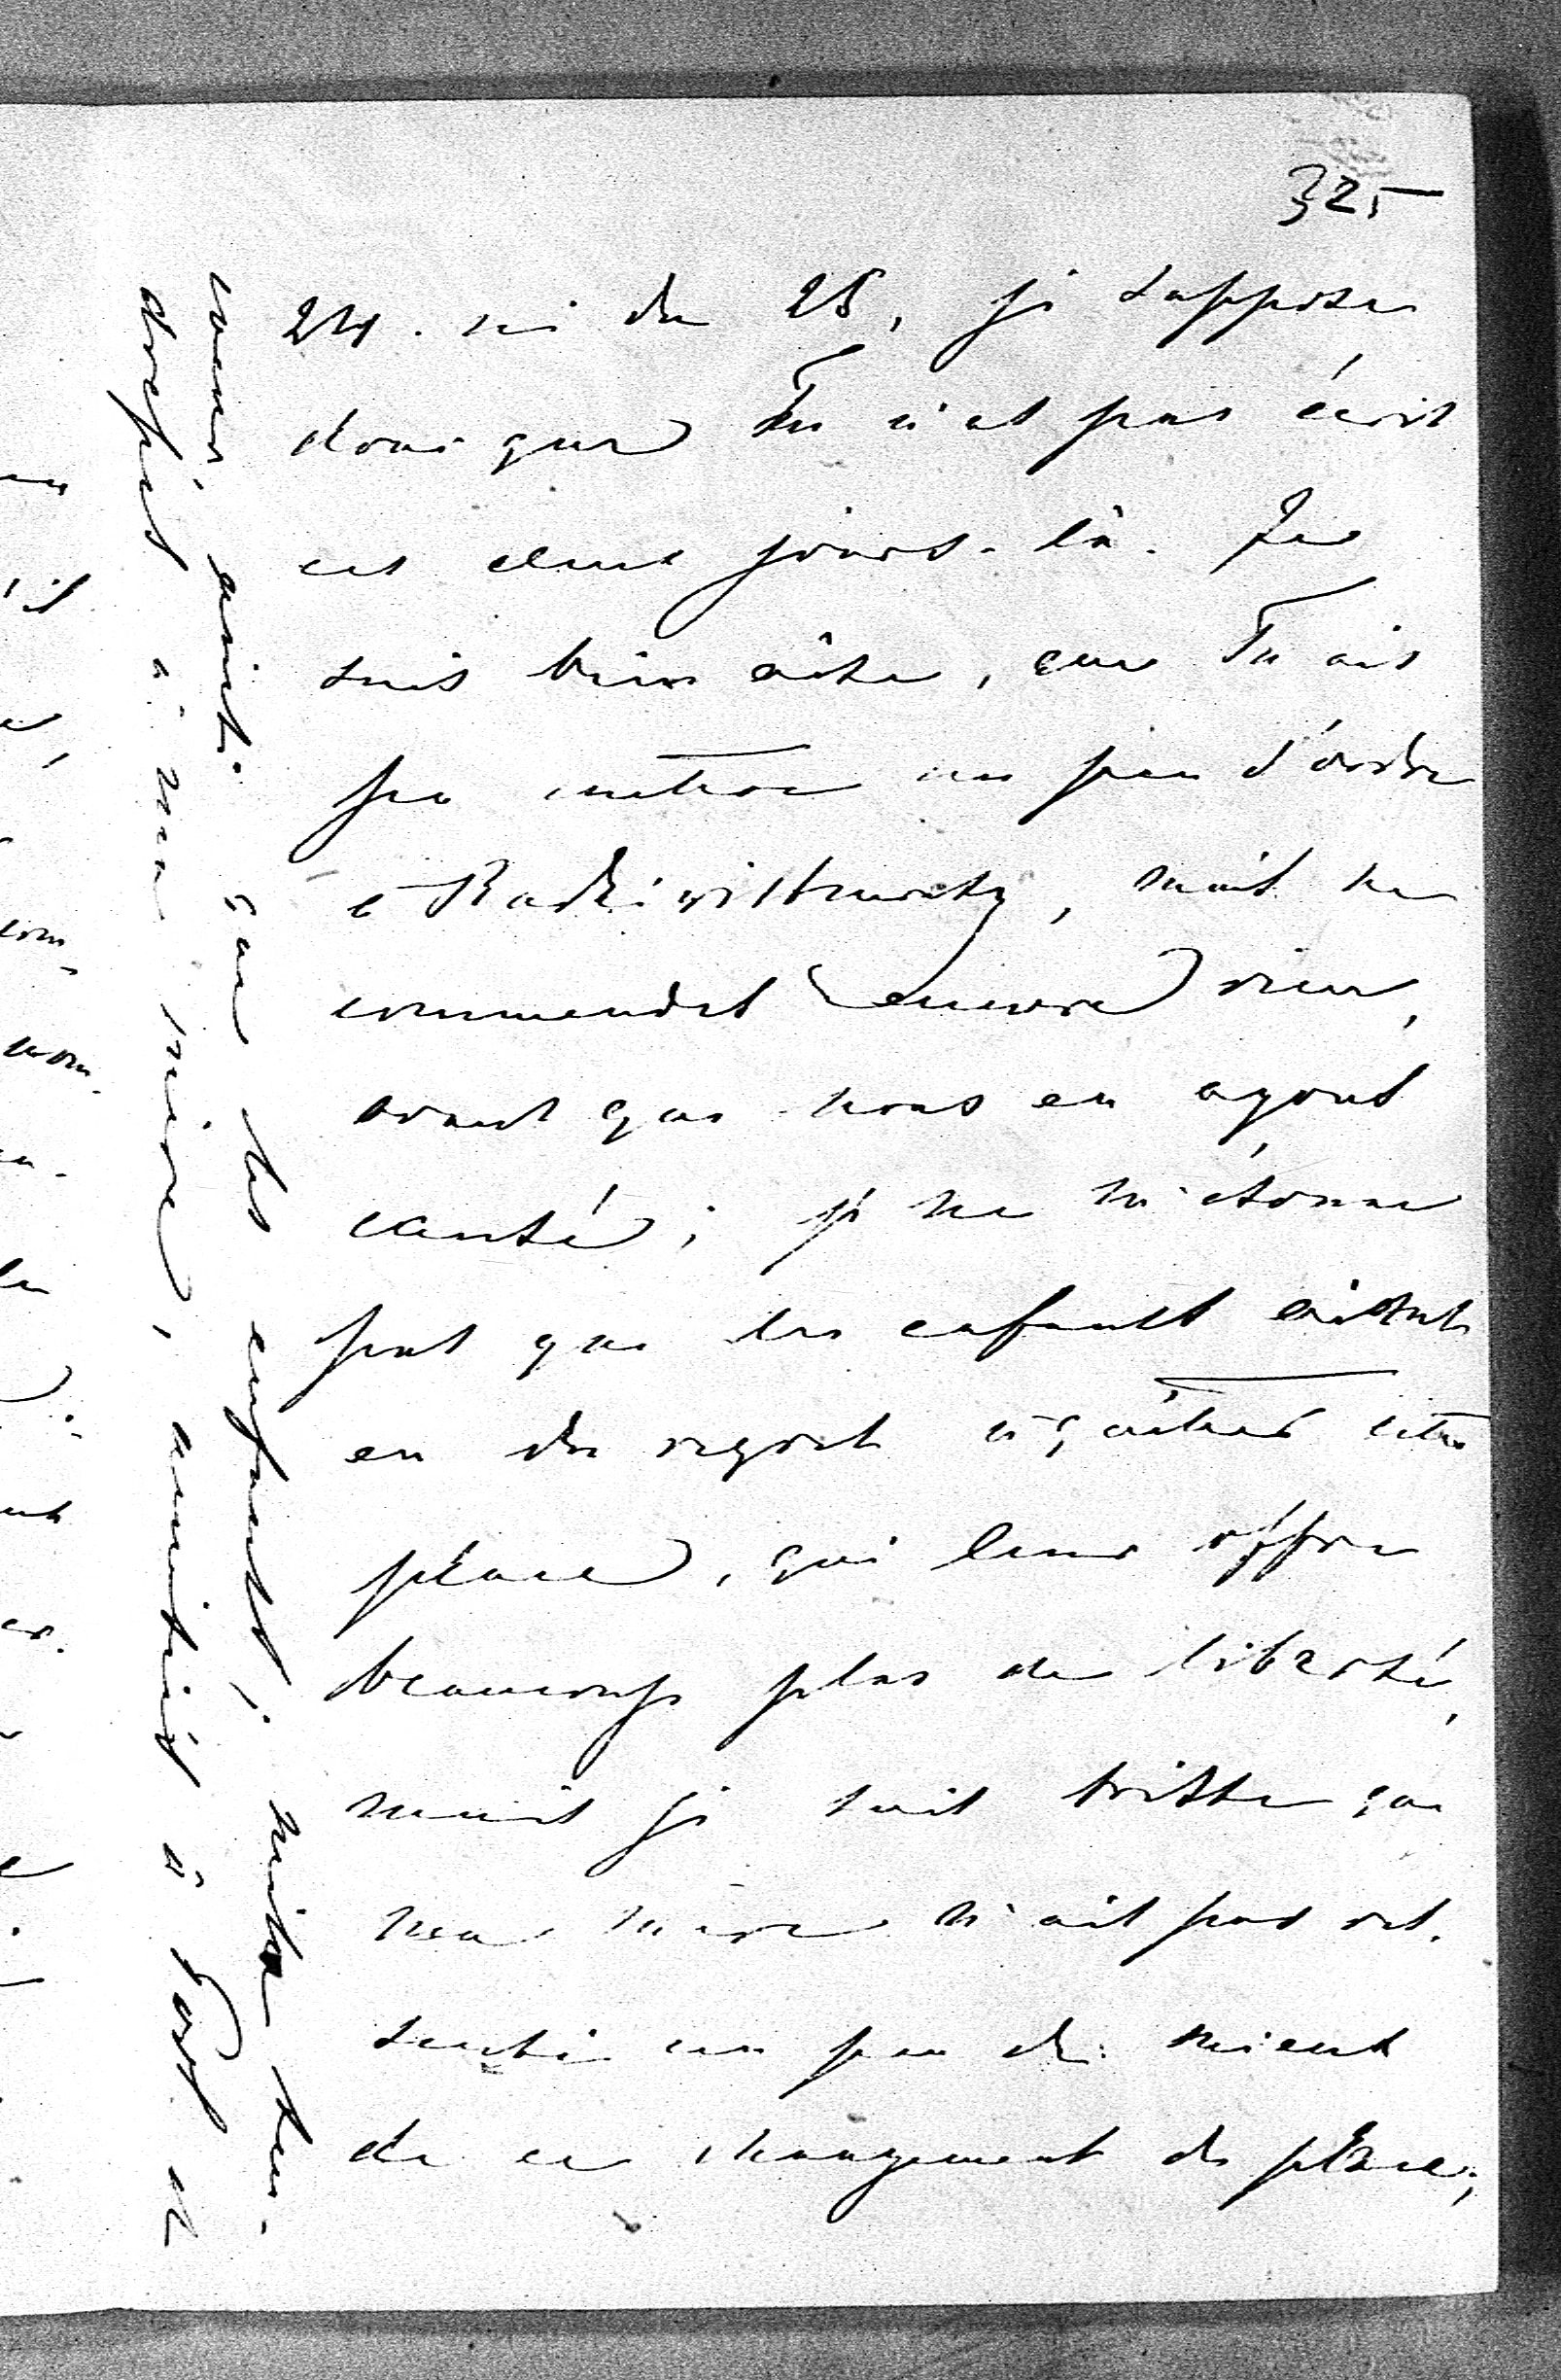 325
24. ni du 25, je suppose
donc que Tu n'as pas écrit
ces deux jours-là. Je
suis bien aise, que Tu ais
pu mettre un peu d'ordre
à, mais ne
commendes encore rien,
avant que nous en ayons
causé; je ne m'étonne
pas que les enfants
en du regret à quitter cette
place, qui leur offre
beaucoup plus de liberté,
mais je suis triste que
ma mère n'ait pas res-
senti un peu de mieux
de ce changement de place;
que les enfants; mille ten-
dresses à ma mère, amitiés à et